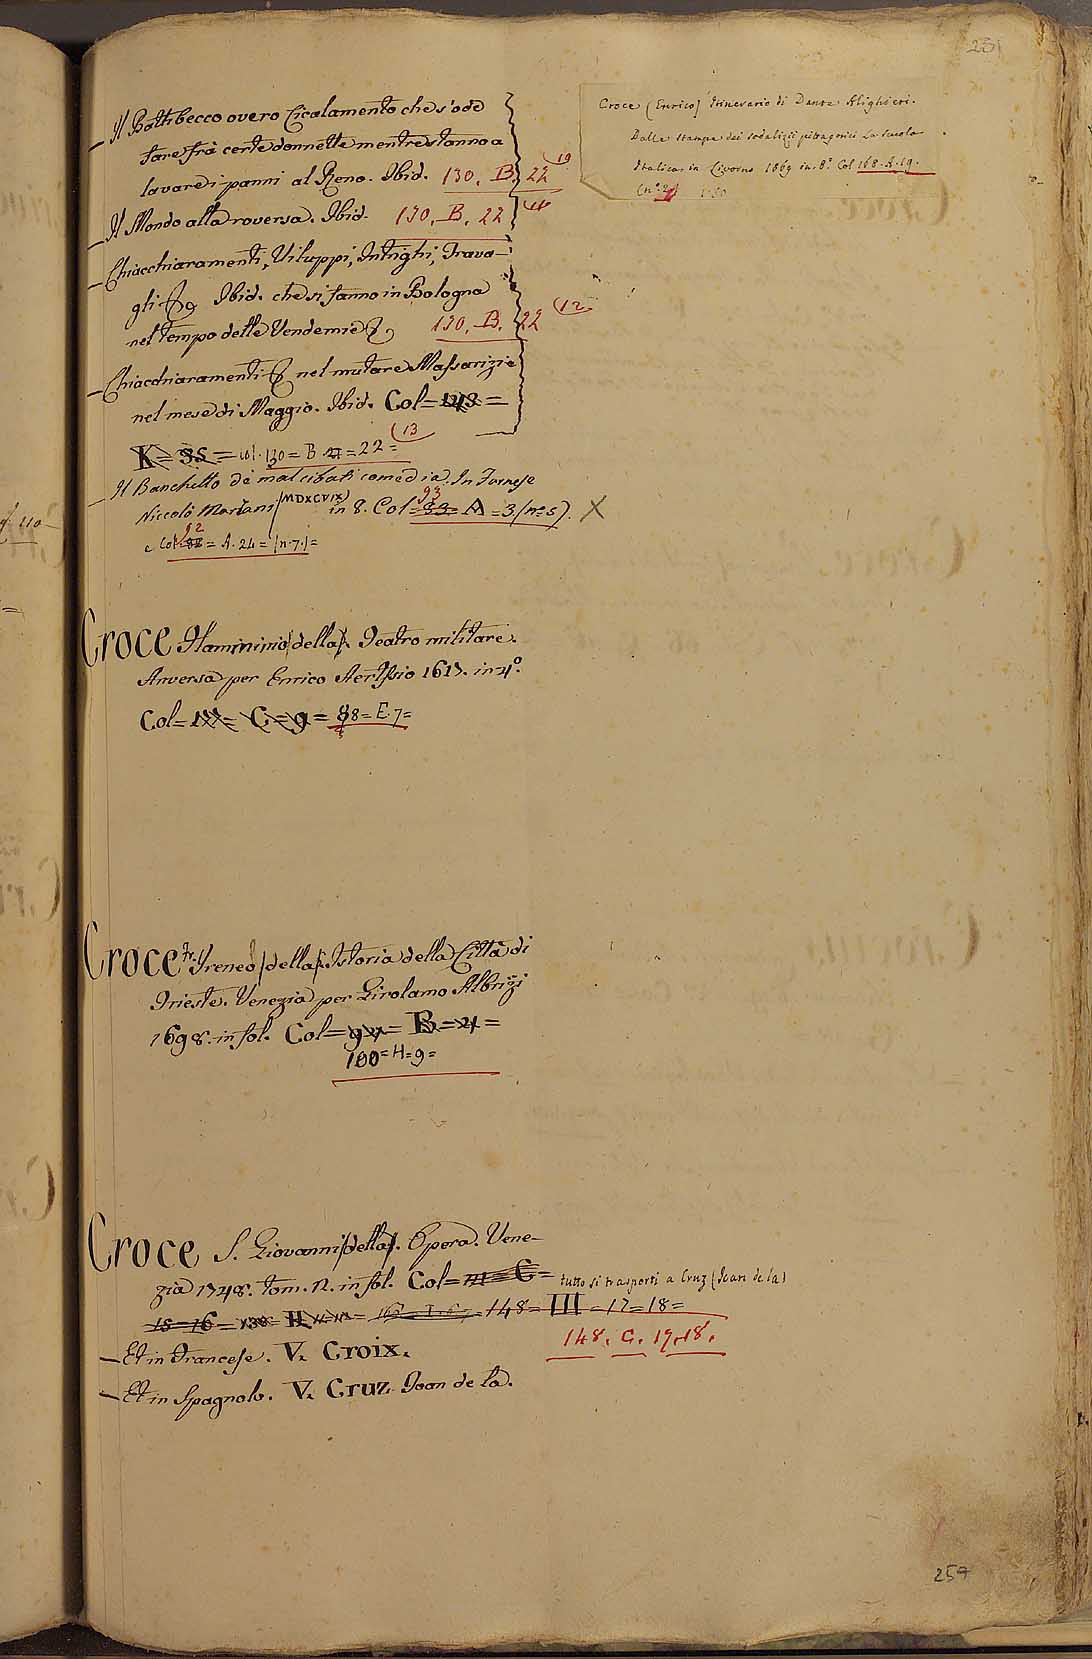 231
Il Battibecco overo Cicalamento che s'ode
fare frà certe donnette mentre stanno a
lavare i panni al Reno. Ibid. 130. B. 22 (10
Il Mondo alla roversa. Ibid. 130. B. 22 (11
Chiacchiaramenti, Viluppi, Intrighi, Trava-
gli & Ibid. che si fanno in Bologna
nel tempo delle Vendemie & 130. B. 22 (12
Chiacchiaramenti & nel mutare Massarizie
nel mese di Maggio. Ibid. Col= 143 =
K= 35 = col. 130 = B = 22 = (13
Il Banchetto de malcibati comedia. In
Niccolò Mariani (MDXCVIX) in 8. Col= 93 = A = 3. (n.° 5). X
e Col 92 = A. 24 = (n. 7.) =
Croce (Enrico) Itinerario di Dante Alighieri.
Dalle stampe dei sodalizii pitagorici La scuola
Italica in Livorno 1869 in 8.° Col 168. A. 19.
(n.° 2)
Croce Flamminio (della). Teatro militare.
Anversa per Enrico Aertssio 1617. in 4.°
Col= C= 9 = 88= E. 7=
Croce Fr. Ireneo (della). Istoria della Città di
Trieste. Venezia per Girolamo Albrizi
1698. in fol. Col= 94 = B = 21 =
100= H= 9=
Croce S. Giovanni (della). Opera. Vene-
zia 1748. tom. 2. in fol. Col= C = tutto si trasporti a Cruz (Joan de la)
15=16= 138= H = 148= III =17=18=
148. C. 17.18.
Et in Francese. V. Croix.
Et in Spagnolo. V. Cruz. Joan de la.
259